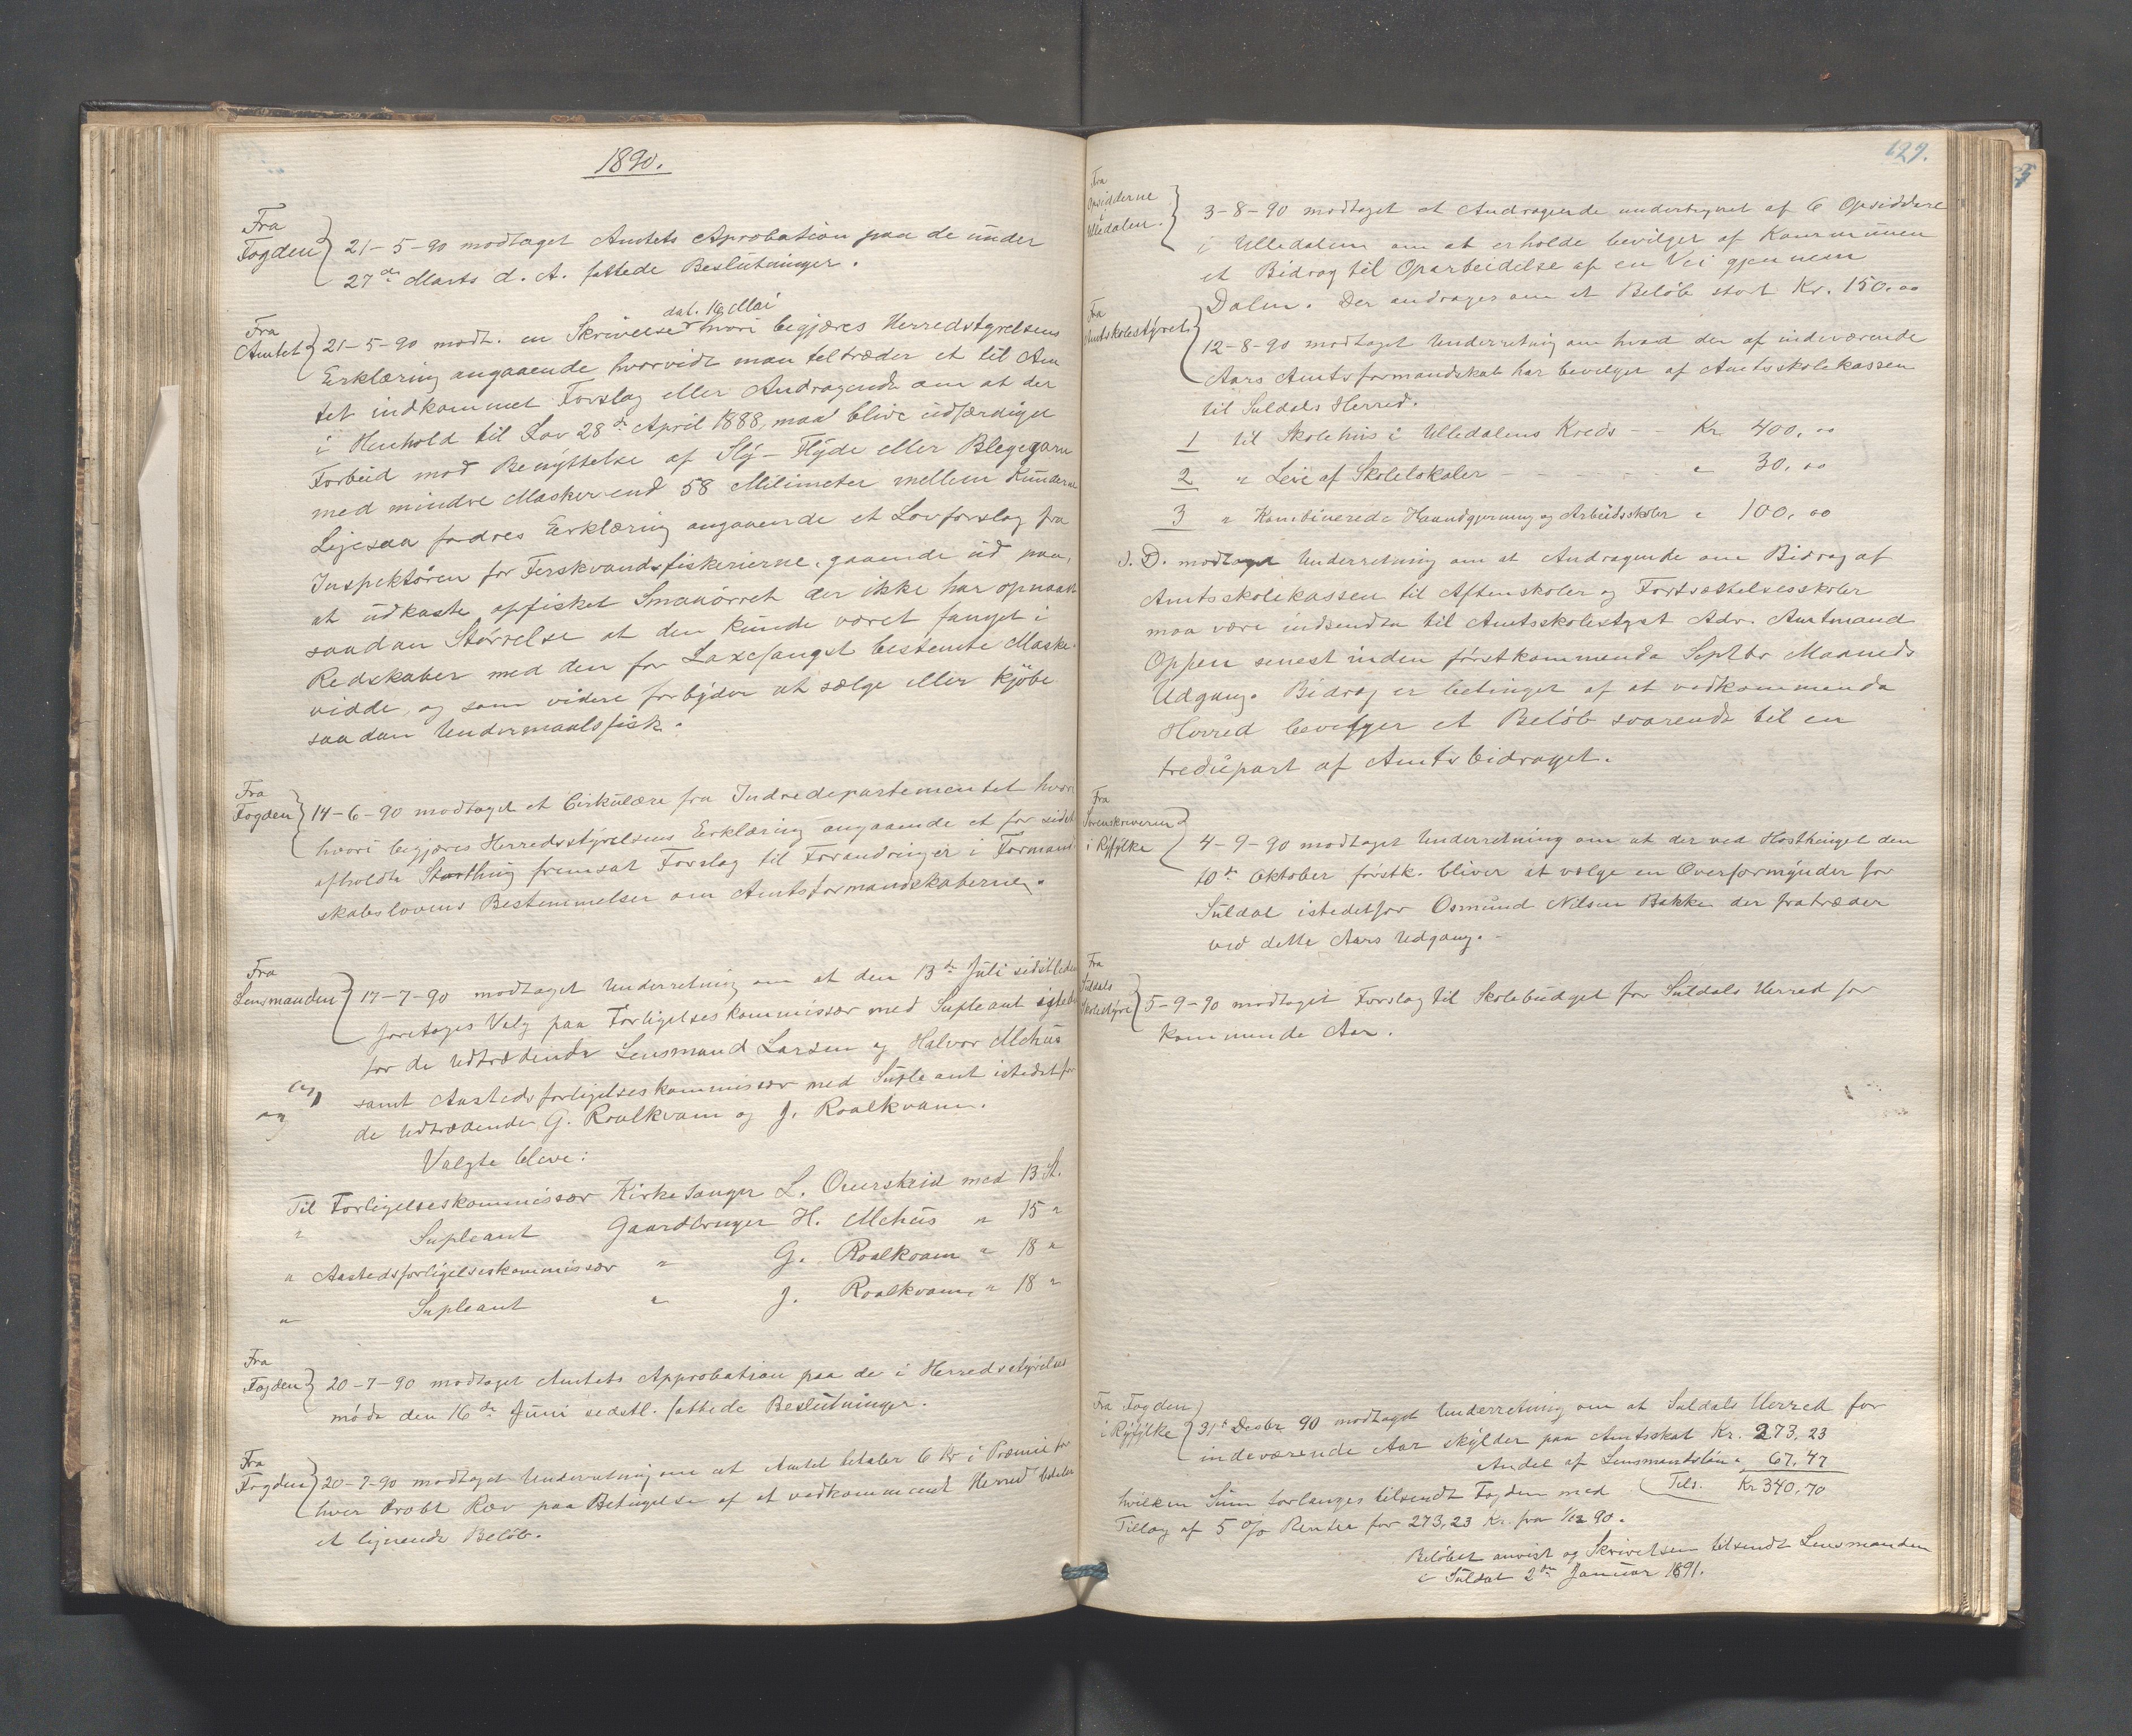 1890.
Fra
Fogden } 21-5-90 modtaget Amtets Aprobation paa de under
27de Marts d. A. fattede Beslutninger.
dat. 19 Mai
Fra
Amtet } 21-5-90 modt. en Skrivelse hvori begjæres Herredstyrelsens
Erklæring angaaende hvorvidt man tiltræder et til Am
tet indkommet Forslag eller Andragende om at der
i Henhold til Lov 28de April 1888, maa blive udfærdiget
Forbud mod Benyttelse af Sly- Flyde eller Blegegarn
med mindre Masker end 58 Milimeter mellem Knuderne
Ligesaa fordres Erklæring angaaende et Lovforslag fra
Inspektøren for Ferskvandsfiskerierne, gaaende ud paa,
at udkaste opfisket Smaaørret der ikke har opnaaet
saadan Størrelse at den kunde været fanget i
Redskaber med den for Laxefangst bestemte Maske-
vidde, og som videre forbyder at sælge eller kjøbe
saadan Undermaalsfisk.
Fra
Fogden } 14-6-90 modtaget et Cirkulære fra Indredepartementet hvori
hvori begjæres Herredsstyrelsens Erklæring angaaende et for sidst
afholdte Storthing fremsat Forslag til Forandringer i Formand
skabslovens Bestemmelser om Amtsformandskaberne.
Fra
Lensmanden } 17-7-90 modtaget Underretning om at den 13de Juli sidstleden
foretoges Valg paa Forligelseskommissær med Supleant istedet
for de Udtrædende Lensmand Larsen og Halvor Mehus
samt Aastedsforligelseskommissær med Supleant istedetfor
de Udtrædende G. Roalkvam og J. Roalkvam.
Valgte bleve:
Til Forligelseskommissær Kirkesanger L. Overskeid med 13 St.
" Supleant Gaardbruger H. Mehus " 15 "
" Aastedsforligelseskommissær " G. Roalkvam " 18 "
" Supleant " J. Roalkvam " 18 "
Fra
Fogden } 20-7-90 modtaget Amtets Approbation paa de i Herredsstyrelses
møde den 16de Juni sidstl. fattede Beslutninger.
Fra
Fogden } 20-7-90 modtaget Underretning om at Amtet betaler 6 Kr i Præmie for
hver dræbt Ræv paa Betingelse af at vedkommende Herred betaler
et lignende Beløb.
129.
Fra
Opsidderne
i
Ulledalen. } 3-8-90 modtaget et Andragende undertegnet af 6 Opsiddere
i Ulledalen om at erholde bevilget af Kommunen
et Bidrag til Oparbeidelse af en Vei gjennem
Dalen. Der andrages om et Beløb stort Kr. 150.00
Fra
Amtskolestyret } 12-8-90 modtaget Underretning om hvad der af indeværende
Aars Amtsformandskab har bevilget af Amtsskolekassen
til Suldals Herred.
1 til Skolehus i Ulledalens Kreds - - Kr. 400,00
2 " Leie af Skolelokaler - - - - " 30,00
3 " Kombinerede Haandgjerning og Arbeidsskoler " 100,00
S. D. modtaget Underretning om at Andragende om Bidrag af
Amtsskolekassen til Aftenskoler og Fortsættelsesskoler
maa være indsendte til Amtsskolestyret Adr. Amtmand
Oppen senest inden førstkommende Septbr Maaneds
Udgang. Bidrag er betinget af at vedkommende
Herred bevilger et Beløb svarende til en
trediepart af Amtsbidraget.
Fra
Sorenskriveren
i Ryfylke } 4-9-90 modtaget Underretning om at der ved Høstthinget den
10de Oktober førstk. bliver at vælge en Overformynder for
Suldal istedetfor Osmund Nilsen Bakke der fratræder
ved dette Aars Udgang. -
Fra
Suldals
Skolestyre } 5-9-90 modtaget Forslag til Skolebudget for Suldals Herred for
kommende Aar.
Fra Fogden
i Ryfylke } 31te Decbr 90 modtaget Underretning om at Suldals Herred for
indeværende Aar skylder paa Amtsskat Kr. 273,23
Andel af Lensmandsløn " 67,47
hvilken Sum forlanges tilsendt Fogden med ( Tils. Kr 340,70
Tillæg af 5 % Rente for 273,23 Kr. fra 1/12 90.
Beløbet anvist og Skrivelsen tilsendt Lensmanden
i Suldal 2den Januar 1891.